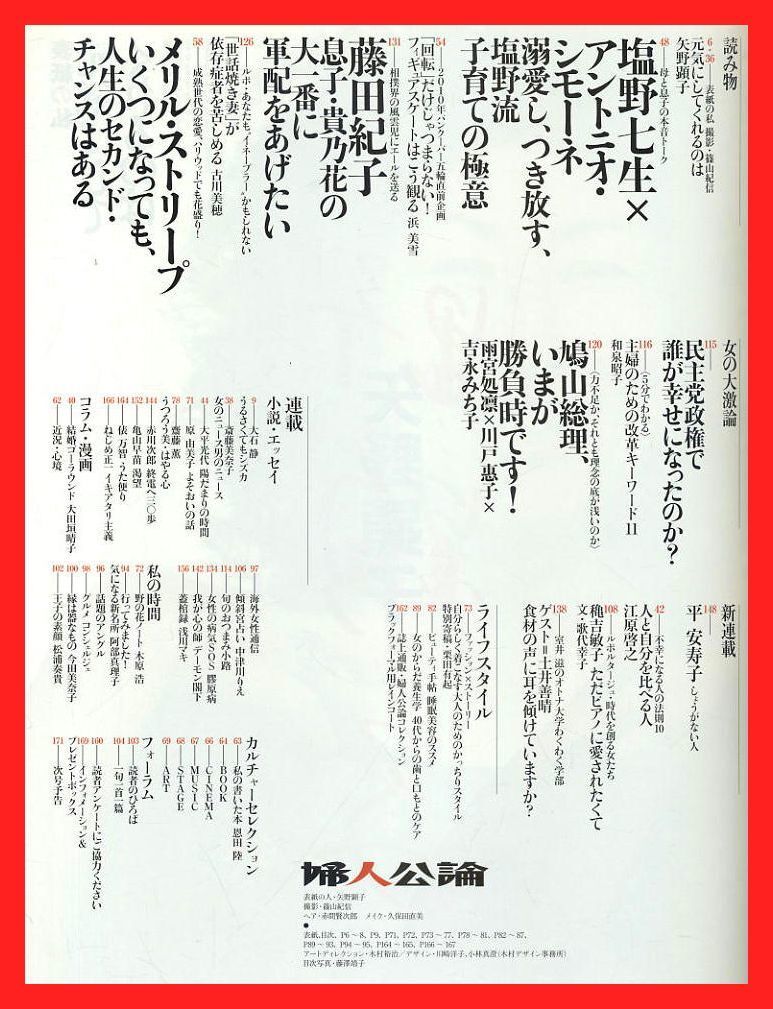 読み物
6・36
表紙の私 撮影・篠山紀信
元気にしてくれるのは
矢野顕子
48
母と息子の本音トーク
塩野七生×
アントニオ・
シモーネ
溺愛し、つき放す、
塩野流
子育ての極意
54
2010年バンクーバー五輪直前企画
「回転」だけじゃつまらない！
フィギュアスケートはこう観る 浜 美雪
131
相撲界の風雲児にエールを送る
藤田紀子
息子・貴乃花の
大一番に
軍配をあげたい
126
ルポ・あなたも“イネーブラー”かもしれない
「世話焼き妻」が
依存症者を苦しめる 古川美穂
58
成熟世代の恋愛、ハリウッドでも花盛り！
メリル・ストリープ
いくつになっても、
人生のセカンド・
チャンスはある
女の大激論
115
民主党政権で
誰が幸せになったのか？
116
〈5分でわかる〉
主婦のための改革キーワード11
和泉昭子
120
〈力不足か、それとも理念の底が浅いのか〉
鳩山総理、
いまが
勝負時です！
雨宮処凛×川戸惠子×
吉永みち子
連載
小説・エッセイ
9
大石 静
うるさくてもシズカ
38
斎藤美奈子
女のニュース男のニュース
44
大平光代 陽だまりの時間
71
原 由美子 よそおいの話
78
齋藤 薫
うつろう美・はやる心
144
赤川次郎 終電へ三〇歩
152
亀山早苗 渇望
164
俵 万智 うた便り
166
ねじめ正一 イキアタリ主義
コラム・漫画
40
結婚コーラウンド 大田垣晴子
62
近況・心境
新連載
148
平 安寿子 しょうがない人
42
不幸になる人の法則10
人と自分を比べる人
江原啓之
108
ルポルタージュ・時代を創る女たち
穐吉敏子 ただピアノに愛されたくて
文・歌代幸子
138
室井 滋のオトナ大学わくわく学部
ゲスト=土井善晴
食材の声に耳を傾けていますか？
ライフスタイル
73
ファッション×ストーリー
自分らしく着こなす大人のためのかっちりスタイル
特別寄稿・栗田有起
82
ビューティ手帖 睡眠美容のススメ
89
女のからだ養生学 40代からの歯と口もとのケア
162
誌上通販・婦人公論コレクション
ブラックフォーマル用レインコート
97
海外女性通信
106
傾斜宮占い 中津川りえ
114
旬のおつまみ小路
134
女性の病気SOS 膠原病
142
我が心の師 デーモン閣下
156
蓋棺録 浅川マキ
私の時間
72
野の花ノート 木原 浩
94
行ってみました！
気になる新名所 阿部真理子
96
話題のアングル
98
グルメ コンシェルジェ
100
縁は器なもの 今田美奈子
102
王子の素顔 松浦奏貴
カルチャーセレクション
63
私の書いた本 恩田 陸
64
BOOK
66
CINEMA
67
MUSIC
68
STAGE
69
ART
フォーラム
103
読者のひろば
104
一句一首一篇
160
読者アンケートにご協力ください
169
インフォメーション&
プレゼントボックス
171
次号予告
婦人公論
表紙の人・矢野顕子
撮影・篠山紀信
ヘア・赤間賢次郎 メイク・久保田直美
●
表紙、目次、P6〜8、P9、P71、P72、P73〜77、P78〜81、P82〜87、
P89〜93、P94〜95、P164〜165、P166〜167
アートディレクション・木村裕治/デザイン・川﨑洋子、小林真澄(木村デザイン事務所)
目次写真・藤澤靖子